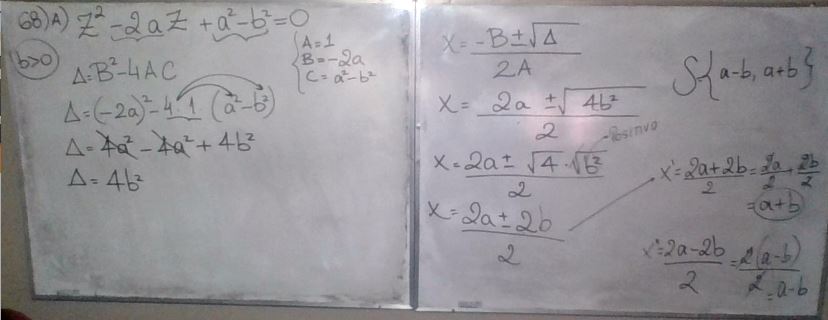 68) A) Z² - 2aZ + a² - b² = 0
b>0
A = 1
B = -2a
C = a² - b²
Δ = B² - 4AC
Δ = (-2a)² - 4·1 (a² - b²)
Δ = 4a² - 4a² + 4b²
Δ = 4b²
X = -B ± √Δ / 2A
S{a-b, a+b}
X = 2a ± √4b² / 2
Positivo
X = 2a ± √4 · √b² / 2
X = 2a ± 2b / 2
x' = 2a + 2b / 2 = 2a / 2 + 2b / 2
= a+b
x'' = 2a - 2b / 2 = 2(a-b) / 2
= a-b